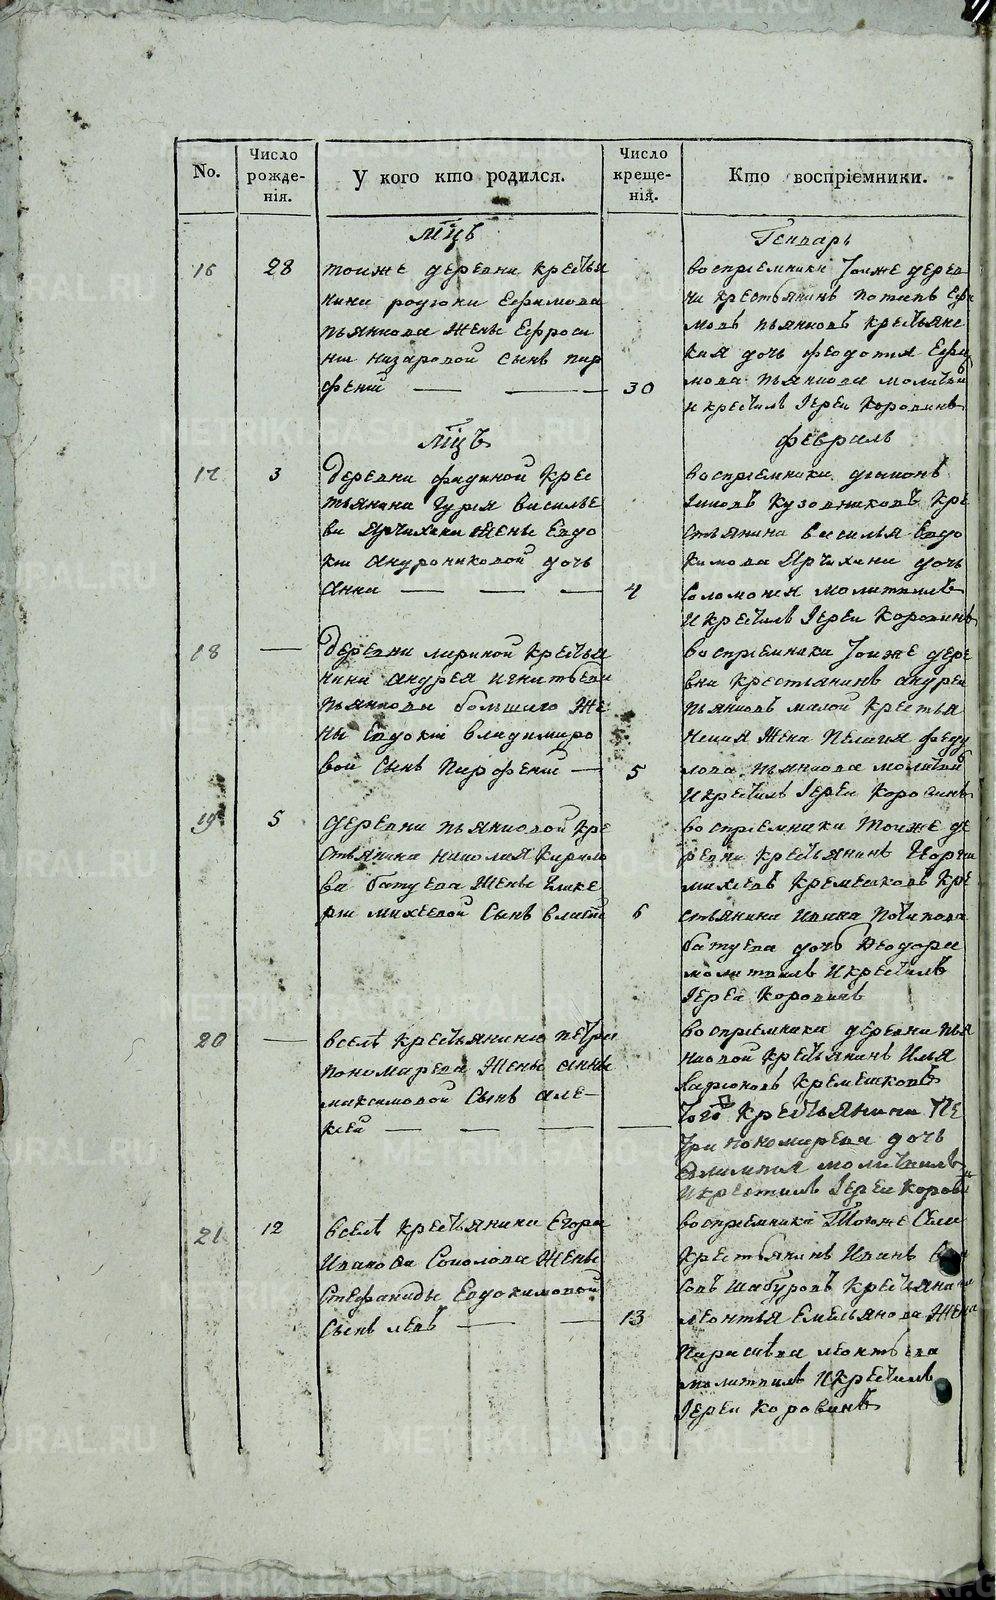 No.
Число рожде-нія.
У кого кто родился.
Число креще-нія.
Кто воспріемники.
мцъ
Генварь
16 28
тоиже деревни крестья
нина родиона Ефимова
пьянкова жены Ефроси
нии назаровой сынъ пар
фений
30
воспрiемники тоиже дерев
ни крестьянинъ потапъ Ефи
мовъ пьянковъ крестьянс
кая дочь феодотия Ефи
мова пьянкова молитвил
и крестилъ Iереи Коровинъ
мцъ
февраль
17 3
деревни фадиной крес
тьянина Гурея василье
ва жены Евдо
кии андрониковой дочь
анна
4
воспрiемники
Кузовниковъ кре
стьянина василья Евдо
кимова дочь
соломония молитвилъ
и крестилъ Iереи Коровинъ
18
деревни лариной крестья
нина андрея игнатьева
пьянкова большаго же
ны Евдокии владимиро
вой сынъ Парфений
5
воспрiемники тоиже дере
вни крестьянинъ андреи
пьянковъ малой крестья
нская жена пелагия феду
лова пьянкова молитвил
и крестилъ Iереи Коровинъ
19 5
деревни пьянковой кре
стьянина николая кирило
ва батуева жены глике
рии михеевой сынъ власий
6
воспрiемники тоиже де
ревни крестьянинъ
михеевъ кремешковъ кре
стьянина ивана потапова
батуева дочь феодора
молитвилъ и крестилъ
Iереи Коровинъ
20
вселѣ крестьянина петра
пономарева жены анны
максимовой сынъ але-
ксей
воспрiемники деревни пья
нковой крестьянинъ Илья
Ларионовъ кремешковъ
того крестьянина пе
тра пономарева дочь
олимпия молитвилъ
и крестилъ Iереи Корови
21 12
вселѣ крестьянина Егора
Иванова Соколова жены
Стефаниды Евдокимовой
сынъ левъ
13
воспрiемники тогоже села
крестьянинъ Иванъ
шабуровъ крестьяна
леонтья Емельянова жена
параскева леонтьева
молитвилъ и крестилъ
Iереи Коровинъ
METRIKI.GASO-URAL.RU